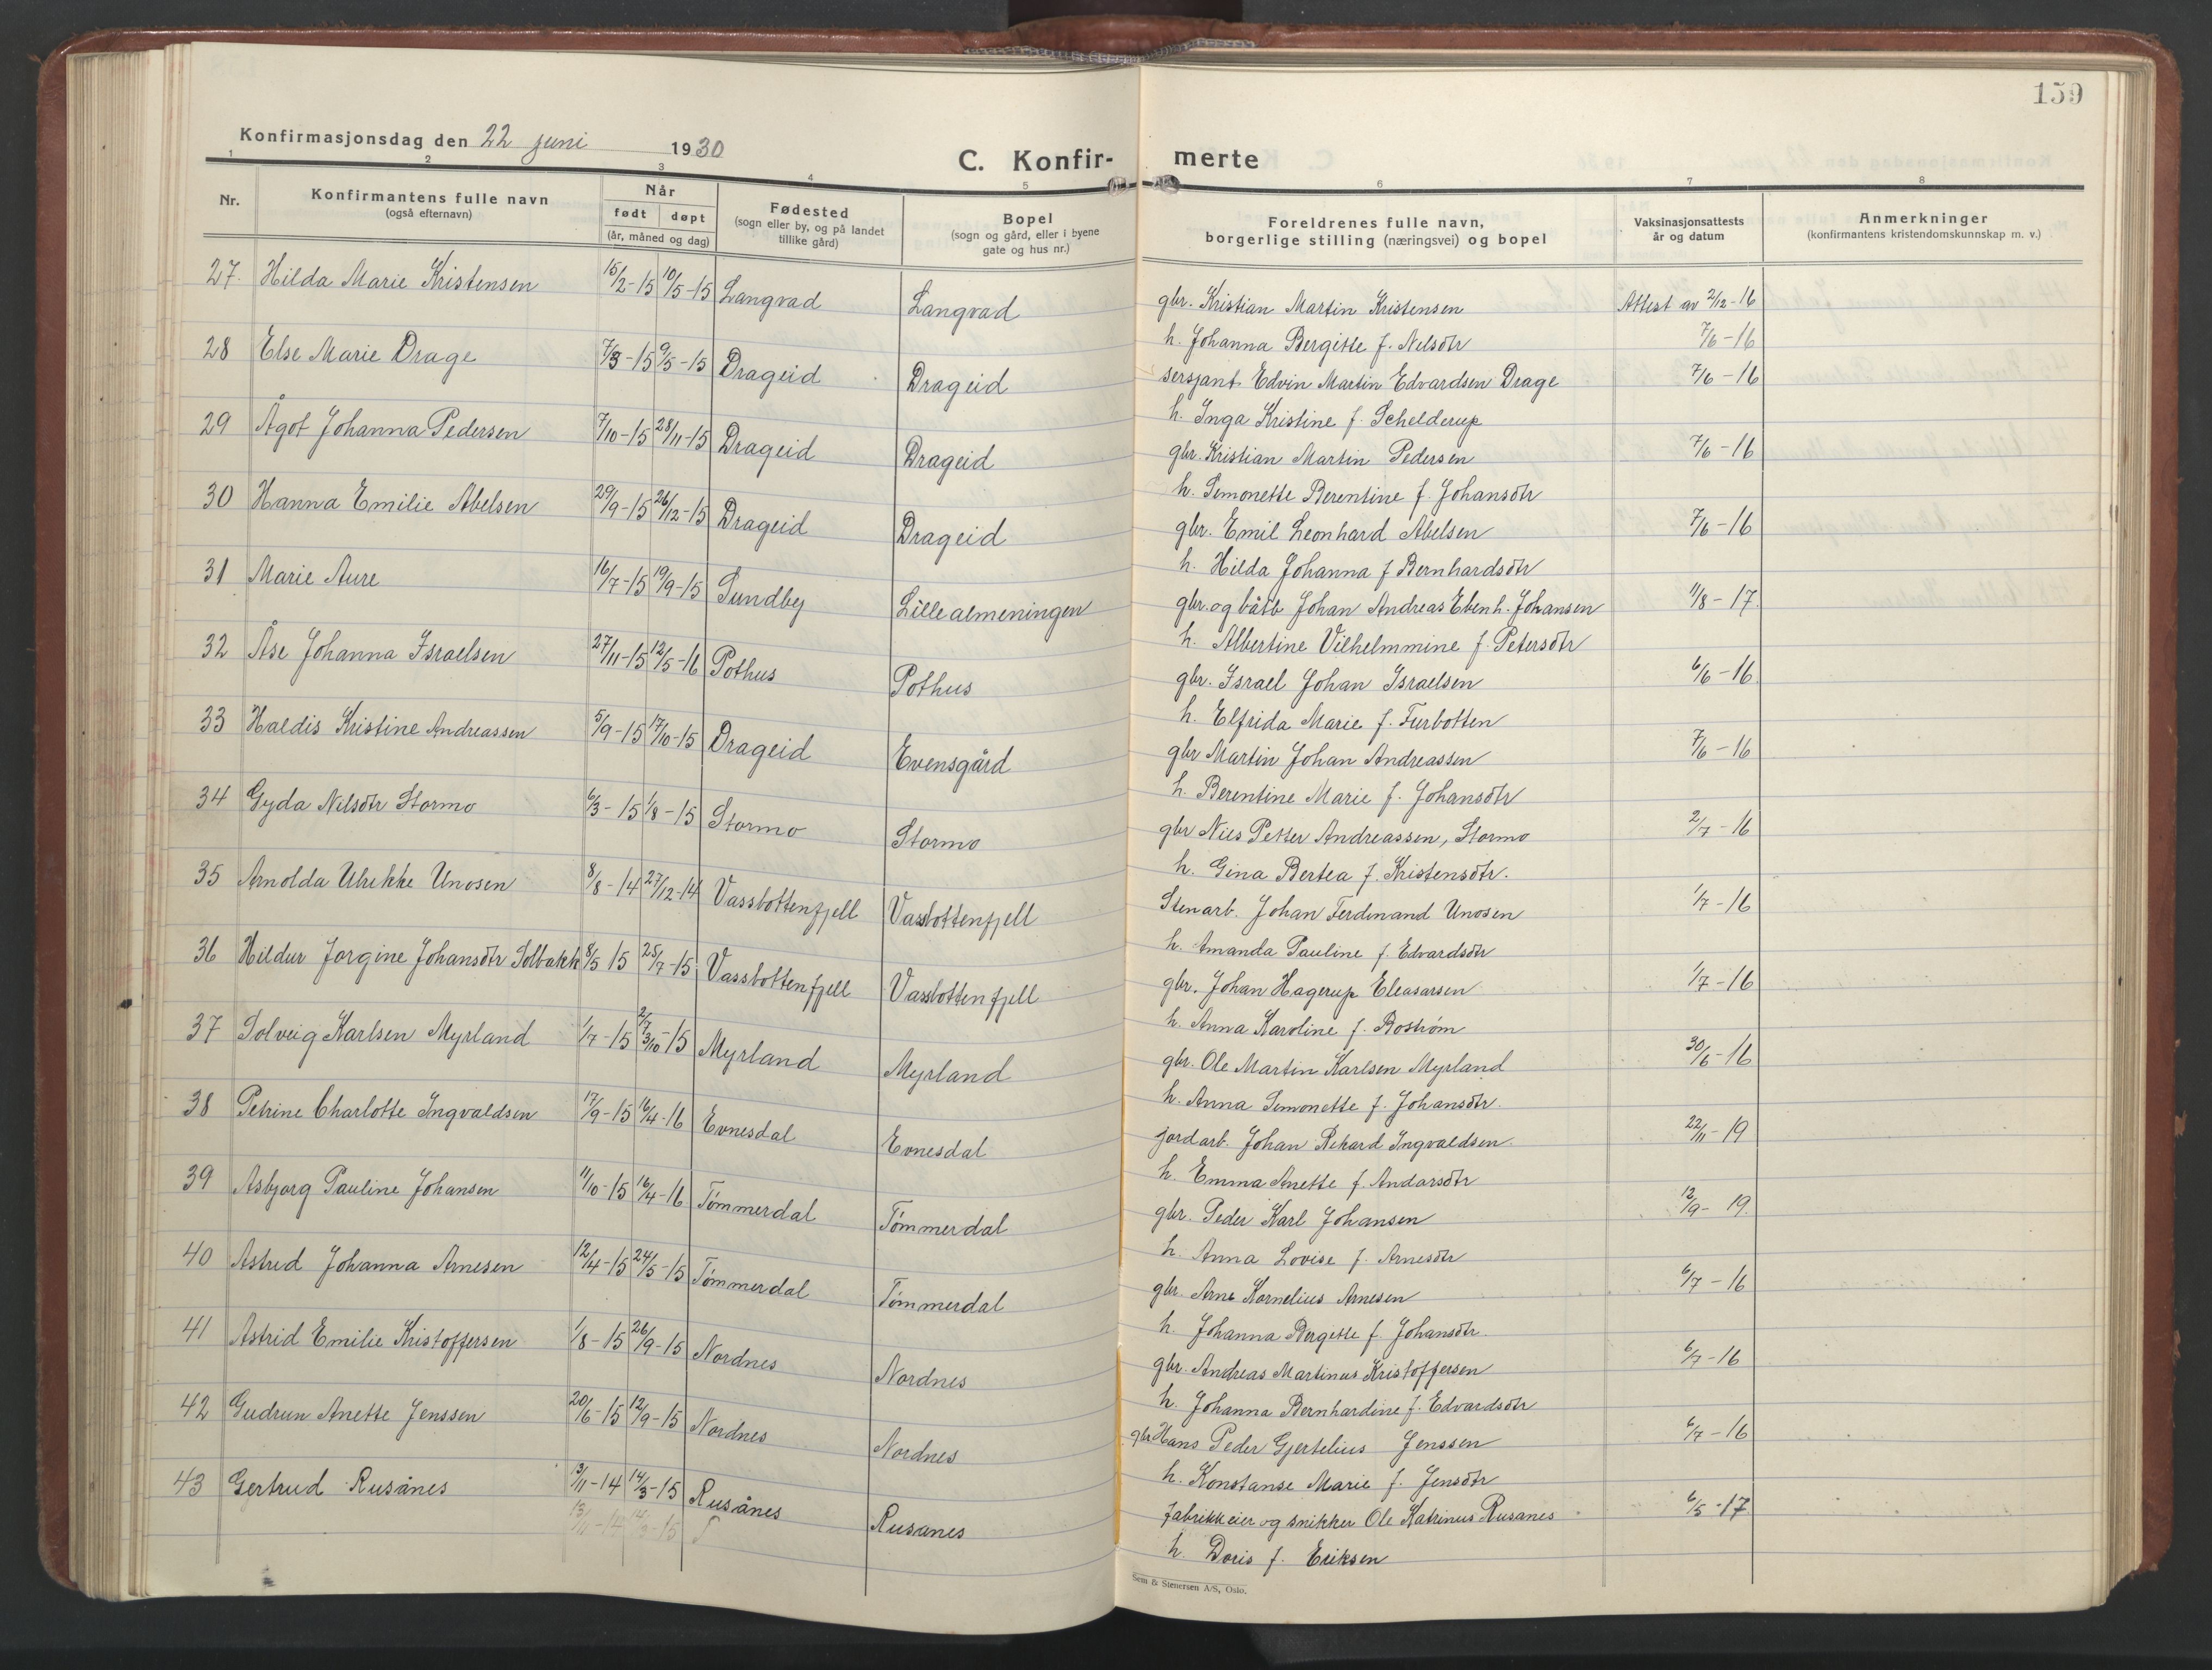 159
Konfirmasjonsdag den 22 juni 1930
C. Konfir- merte
1 2 3 4 5 6 7 8
Nr. Konfirmantens fulle navn (også efternavn) Når født døpt (år, måned og dag) Fødested (sogn eller by, og på landet tillike gård) Bopel (sogn og gård, eller i byene gate og hus nr.) Foreldrenes fulle navn, borgerlige stilling (næringsvei) og bopel Vaksinasjonsattests år og datum Anmerkninger (konfirmantens kristendomskunnskap m. v.)
27. Hilda Marie Kristensen 15/2-15 10/5-15 Langvad Langvad gbr. Kristian Martin Kristensen Attest av 2/12-16
h. Johanna Bergitte f. Nelsdtr 7/6-16
28 Else Marie Drage 7/3-15 9/5-15 Drageid Drageid sersjant Edvin Martin Edvardsen Drage 7/6-16
h. Inga Kristine f. Schelderup
29 Ågot Johanna Pedersen 7/10-15 28/11-15 Drageid Drageid gbr. Kristian Martin Pedersen 7/6-16
h. Simonette Berentine f. Johansdtr
30 Hanna Emilie Abelsen 29/9-15 26/12-15 Drageid Drageid gbr. Emil Leonhard Abelsen 7/6-16
h. Hilda Johanna f Bernhardsdtr
31 Marie Aure 16/7-15 19/9-15 Sundby Lillealmeningen gbr. og båtb Johan Andreas Ebenh. Johansen 11/8-17.
h. Albertine Vilhelmmine f. Petersdtr
32 Åse Johanna Israelsen 27/11-15 12/5-16 Pothus Pothus gbr. Israel Johan Israelsen 6/6-16
h. Elfrida Marie f. Furbotten
33 Haldis Kristine Andreassen 5/9-15 17/10-15 Drageid Evensgård gbr Martin Johan Andreassen 7/6-16
h. Berentine Marie f. Johansdtr
34 Gyda Nilsdtr Stormo 6/3-15 1/8-15 Stormo Stormo gbr Nils Petter Andreassen, Stormo 2/7-16
h. Gina Bertea f. Kristensdtr.
35 Arnolda Ulrikke Unosen 8/8-14 27/12-14 Vassbottenfjell Vassbottenfjell Stenarb. Johan Ferdinand Unosen 1/7-16
h. Amanda Pauline f. Edvardsdtr
36 Hildur Jorgine Johansdtr Solbakk 8/5 15 25/7-15 Vassbottenfjell Vassbottenfjell gbr. Johan Hagerup Eleasarsen 1/7-16
h. Anna Karoline f. Boström
37 Solveig Karlsen Myrland 1/7-15 3/10-15 Myrland Myrland gbr. Ole Martin Karlsen Myrland 30/6-16
h. Anna Simonette f. Johansdtr.
38 Petrine Charlotte Ingvaldsen 17/9-15 16/4-16 Evnesdal Evnesdal jordarb. Johan Rikard Ingvaldsen 22/11-19
h. Emma Anette f. Andarsdtr
39 Asbjørg Pauline Johansen 11/10-15 16/4-16 Tømmerdal Tømmerdal gbr. Peder Karl Johansen 12/9-19.
h. Anna Lovise f. Arnesdtr
40 Astrid Johanna Arnesen 12/4-15 24/5-15 Tømmerdal Tømmerdal gbr. Arne Kornelius Arnesen 6/7-16
h. Johanna Bergitte f. Johansdtr.
41 Astrid Emilie Kristoffersen 1/8-15 26/9-15 Nordnes Nordnes gbr. Andreas Martinus Kristoffersen 6/7-16
h. Johanna Bernhardine f. Edvardsdtr
42 Gudrun Anette Jenssen 20/6-15 12/9-15 Nordnes Nordnes gbr Hans Peder Gjertelius Jenssen 6/7-16
h. Konstanse Marie f. Jensdtr
43 Gertrud Rusånes 13/11-14 14/3-15 Rusånes Rusanes fabrikkeier og snikker Ole Katrinus Rusanes 6/5-17
13/11-14 14/3-15
h. Doris f. Eriksen
Sem & Stenersen A/S, Oslo.